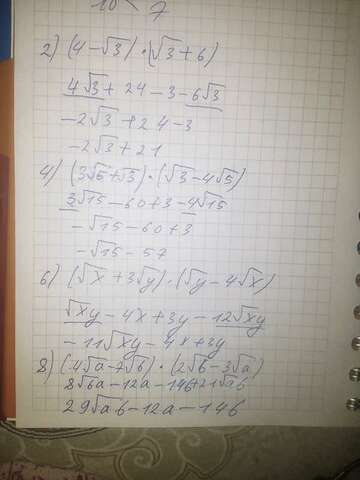 10 \ 7
2) (4-√3)·(√3+6)
4√3+24-3-6√3
-2√3+24-3
-2√3+21
4) (3√5+√3)·(√3-4√5)
3√15-60+3-4√15
-√15-60+3
-√15-57
6) (√x+3√y)·(√y-4√x)
√xy-4x+3y-12√xy
-11√xy-4x+3y
8) (4√a-7√b)·(2√b-3√a)
8√ba-12a-14b+21√ab
29√ab-12a-14b